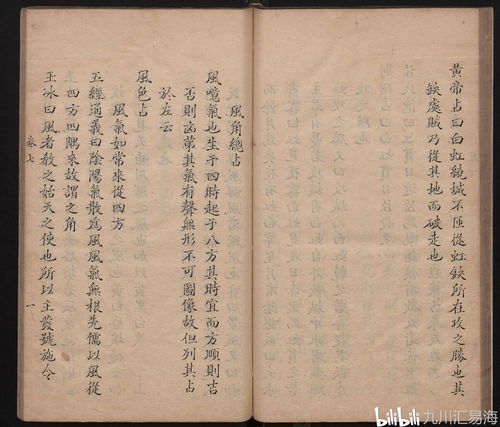 黃帝占曰白虹繞城不匝從虹缺所在攻之勝也其
缺處賊乃從其地而破走也
風角總占
風噫氣也生于四時起于八方其時宜而方順則吉
否則凶第其氣有聲無形不可圖像故但列其占
於左云
風色占
風氣如常來從四方
五經通義曰陰陽氣散為風風氣無根先儒以風從
四方四隅來故謂之角
王冰曰風者教之始天之使也所以主發號施令
卷七
一
bilibili 九川汇易海